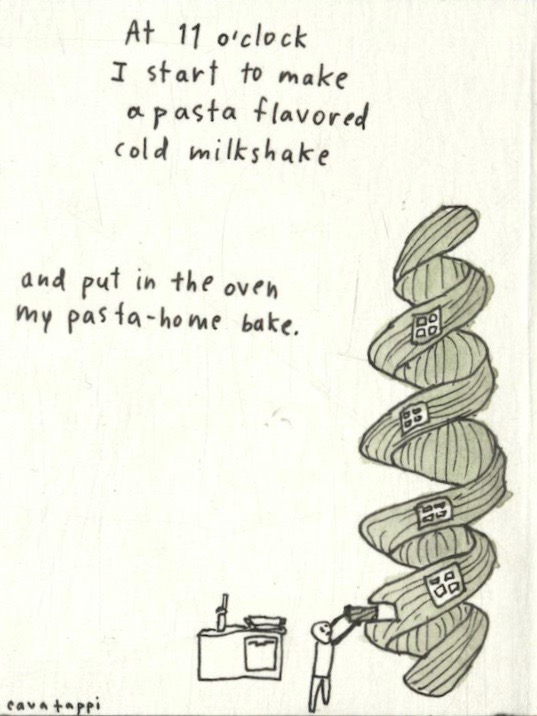 At 11 o'clock
I start to make
a pasta flavored
cold milkshake
and put in the oven
my pasta-home bake.
cavatappi